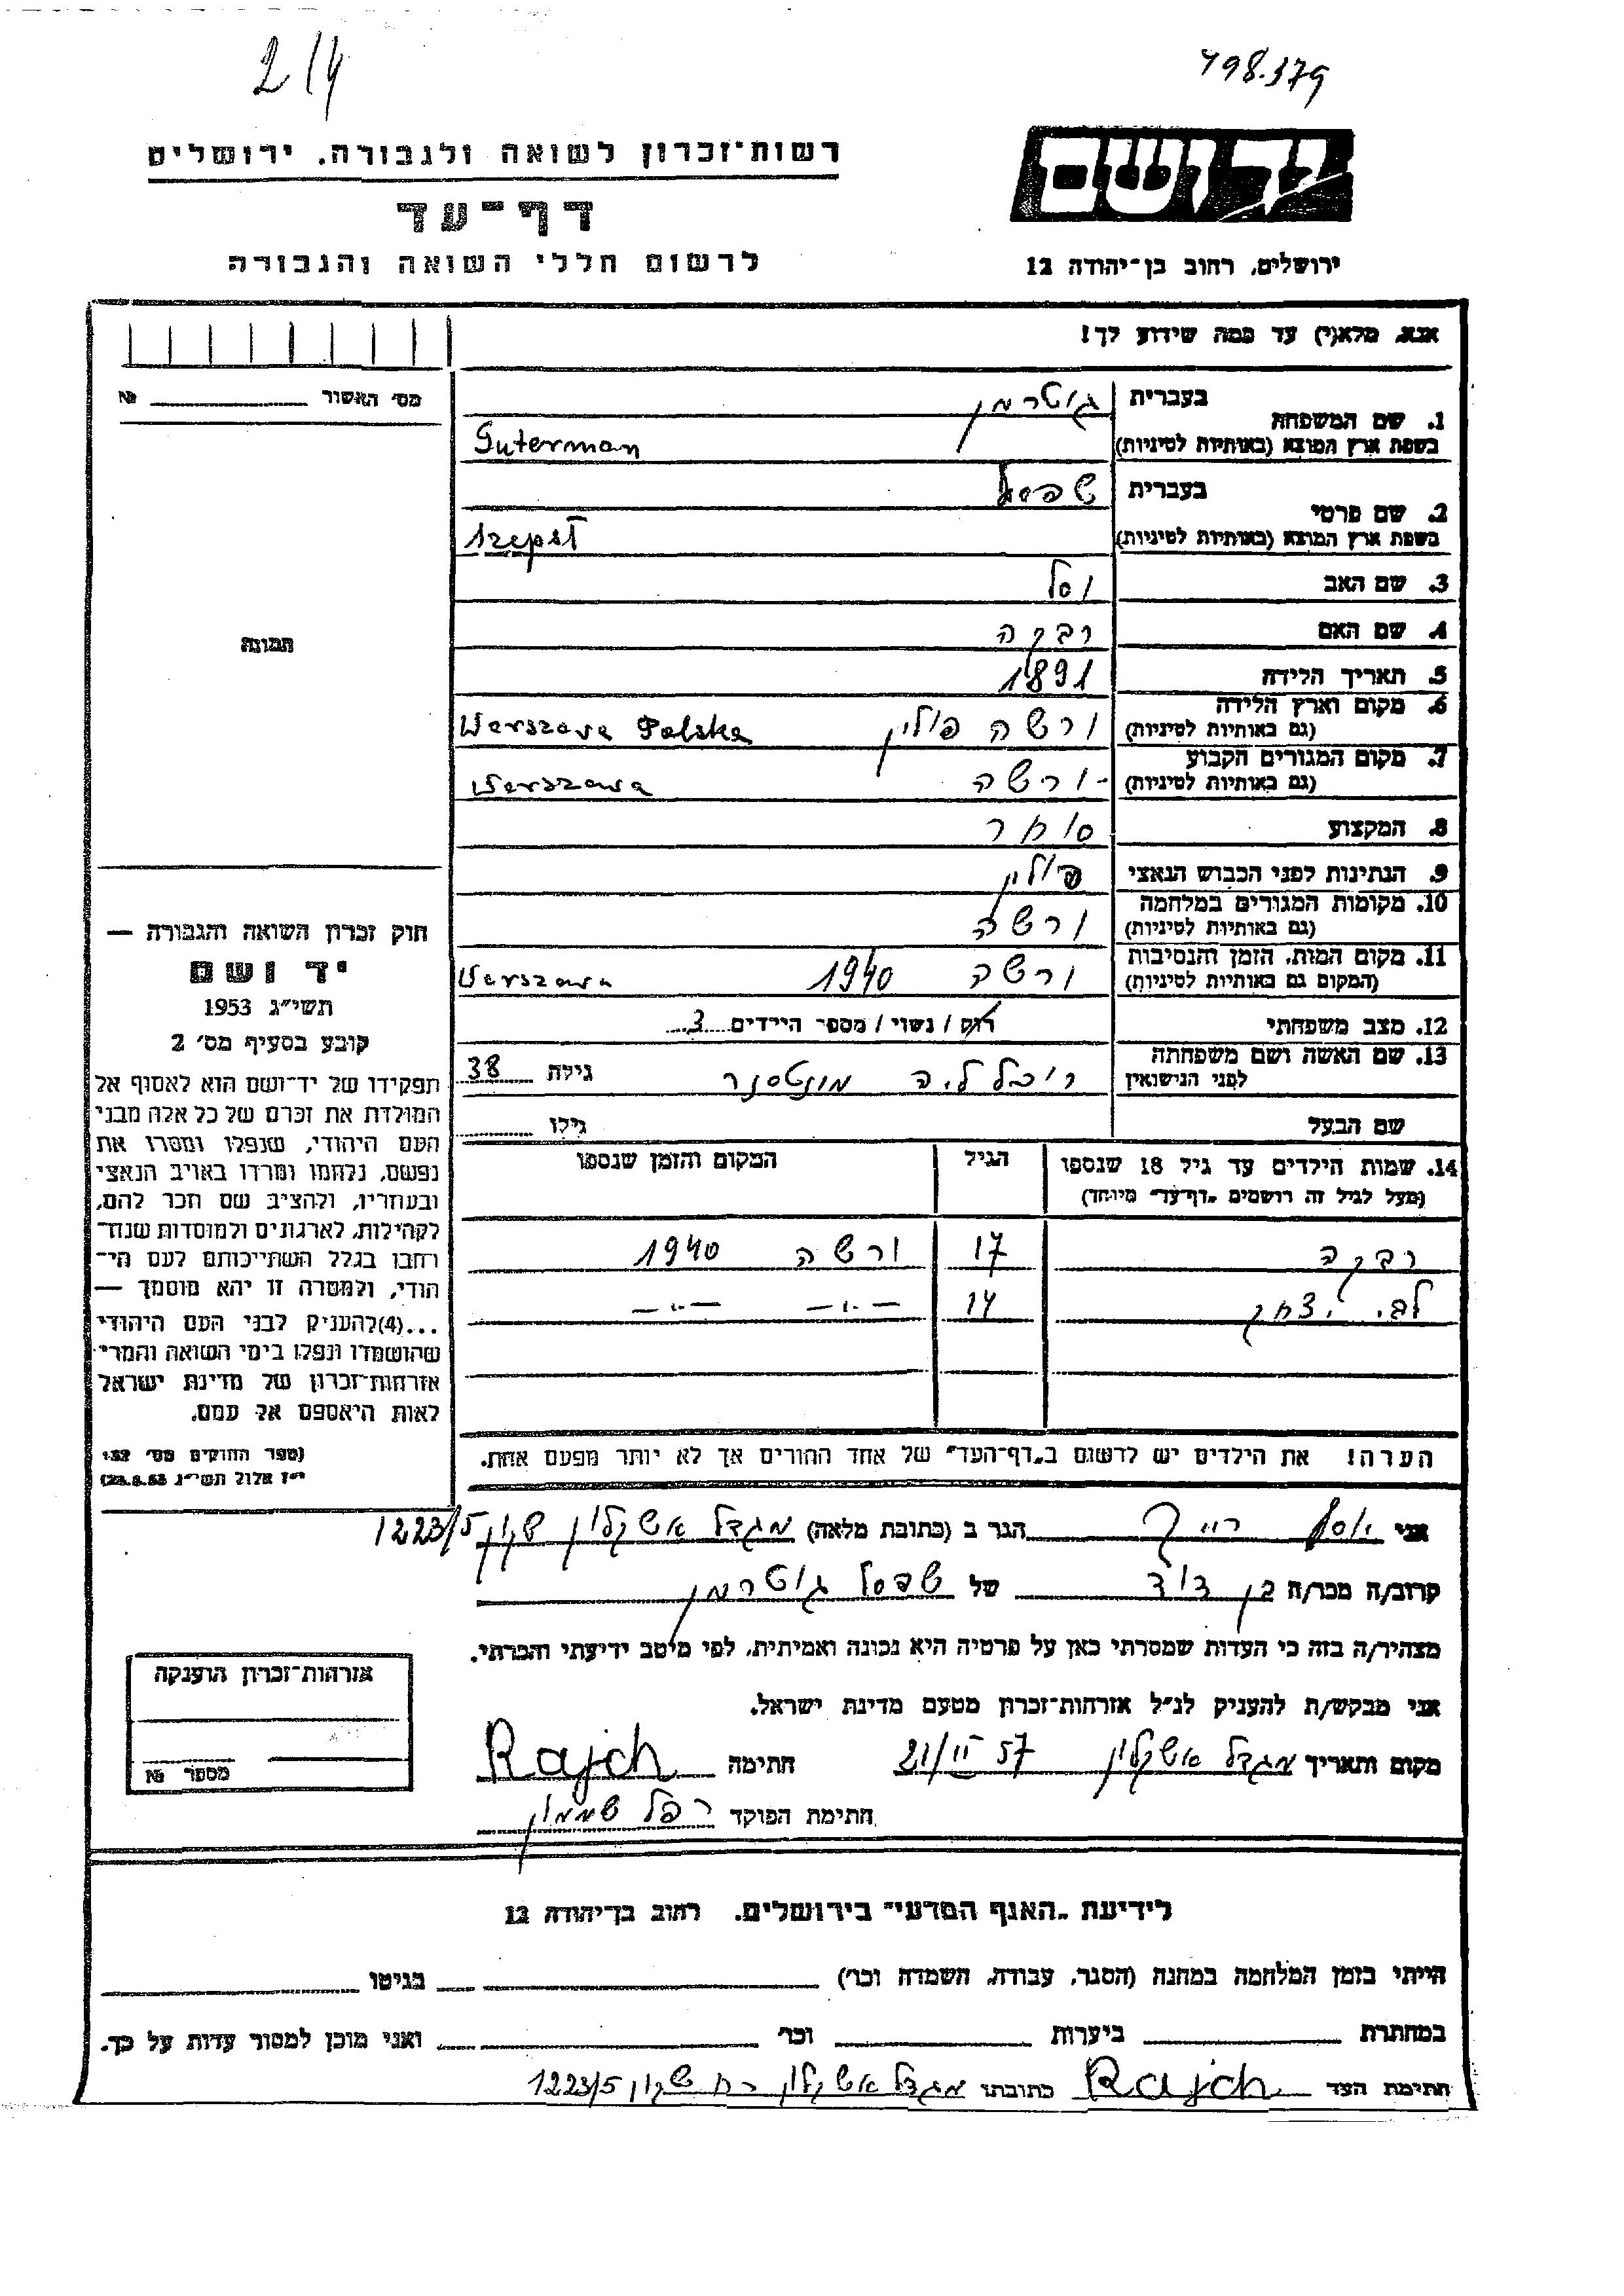 2/4
498.379
רשות־זכרון לשואה ולגבורה. ירושלים
דף־עד
לרשום חללי השואה והגבורה
יד ושם
ירושלים, רחוב בן־יהודה 12
אנא, מלא(י) עד כמה שידוע לך!
מס׳ האשור №
1. שם המשפחה
בעברית גוטרמן
בשפת ארץ המוצא (באותיות לטיניות) Guterman
2. שם פרטי
בעברית שפסל
בשפת ארץ המוצא (באותיות לטיניות) Szepsł
3. שם האב
4. שם האם רבקה
5. תאריך הלידה 1891
6. מקום וארץ הלידה
(גם באותיות לטיניות) ורשה פולין Werszawa Polska
7. מקום המגורים הקבוע
(גם באותיות לטיניות) ורשה Werszawa
8. המקצוע סוחר
9. הנתינות לפני הכבוש הנאצי פולין
10. מקומות המגורים במלחמה
(גם באותיות לטיניות) ורשה
11. מקום המות, הזמן והנסיבות
(המקום גם באותיות לטיניות) ורשה 1940 Werszawa
12. מצב משפחתי רווק / נשוי / מספר הילדים 3
13. שם האשה ושם משפחתה
לפני הנישואין לאה גילה 38
שם הבעל גילו
14. שמות הילדים עד גיל 18 שנספו הגיל המקום והזמן שנספו
(מעל לגיל זה רושמים „דף־עד״ מיוחד)
רבקה 17 ורשה 1940
יצחק 14 —„— —„—
הערה! את הילדים יש לרשום ב„דף־העד״ של אחד ההורים אך לא יותר מפעם אחת.
תמונה
חוק זכרון השואה והגבורה —
יד ושם
תשי״ג 1953
קובע בסעיף מס׳ 2
תפקידו של יד־ושם הוא לאסוף אל
המולדת את זכרם של כל אלה מבני
העם היהודי, שנפלו ומסרו את
נפשם, נלחמו ומרדו באויב הנאצי
ובעוזריו, ולהציב שם וזכר להם,
לקהילות, לארגונים ולמוסדות שנח־
רבו בגלל השתייכותם לעם הי־
הודי, ולמטרה זו יהא מוסמך —
...(4) להעניק לבני העם היהודי
שהושמדו ונפלו בימי השואה והמרי
אזרחות־זכרון של מדינת ישראל
לאות היאספם אל עמם.
(ספר החוקים מס׳ 132
י״ז אלול תשי״ג 28.8.53)
אני יוסף רייך הגר ב (כתובת מלאה) מגדל אשקלון שכון 1223/5
קרוב/ה מכר/ה בן דוד של שפסל גוטרמן
מצהיר/ה בזה כי העדות שמסרתי כאן על פרטיה היא נכונה ואמיתית, לפי מיטב ידיעתי והכרתי.
אני מבקש/ת להעניק לנ״ל אזרחות־זכרון מטעם מדינת ישראל.
מקום ותאריך מגדל אשקלון 21/II 57 חתימה Rajch
חתימת הפוקד
אזרחות־זכרון הוענקה
מספר №
לידיעת „האגף המדעי״ בירושלים. רחוב בן־יהודה 12
הייתי בזמן המלחמה במחנה (הסגר, עבודה, השמדה וכו׳) בגיטו
במחתרת ביערות וכו׳ ואני מוכן למסור עדות על כך.
חתימת העד Rajch כתובתו מגדל אשקלון שכון 1223/5